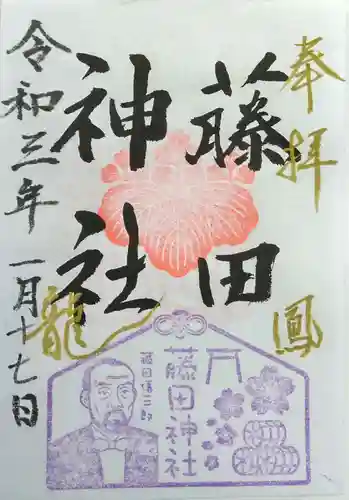 奉拝
藤田
神社
令和三年 一月十七日
鳳
龍
藤田神社
藤田傳三郎